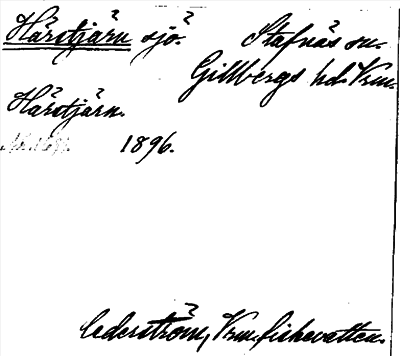 Hårstjärn sjö.
Stafnäs sn.
Gillbergs hd. Vrm.
Hårstjärn.
1896.
Cederström, Vrm. fiskevatten.